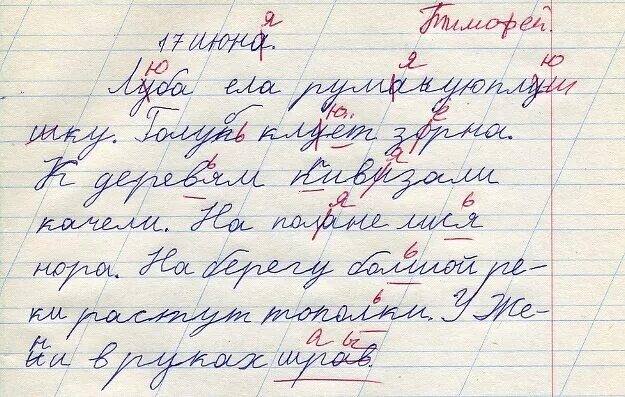 Тимофей.
17 июна.
Луба ела румачуюплуш
шку. Голубь клует зорна.
К деревям кивизали
качели. На полане лися
нора. На берегу болшой ре-
ки растут тополки. У Же-
ни в руках шрав.